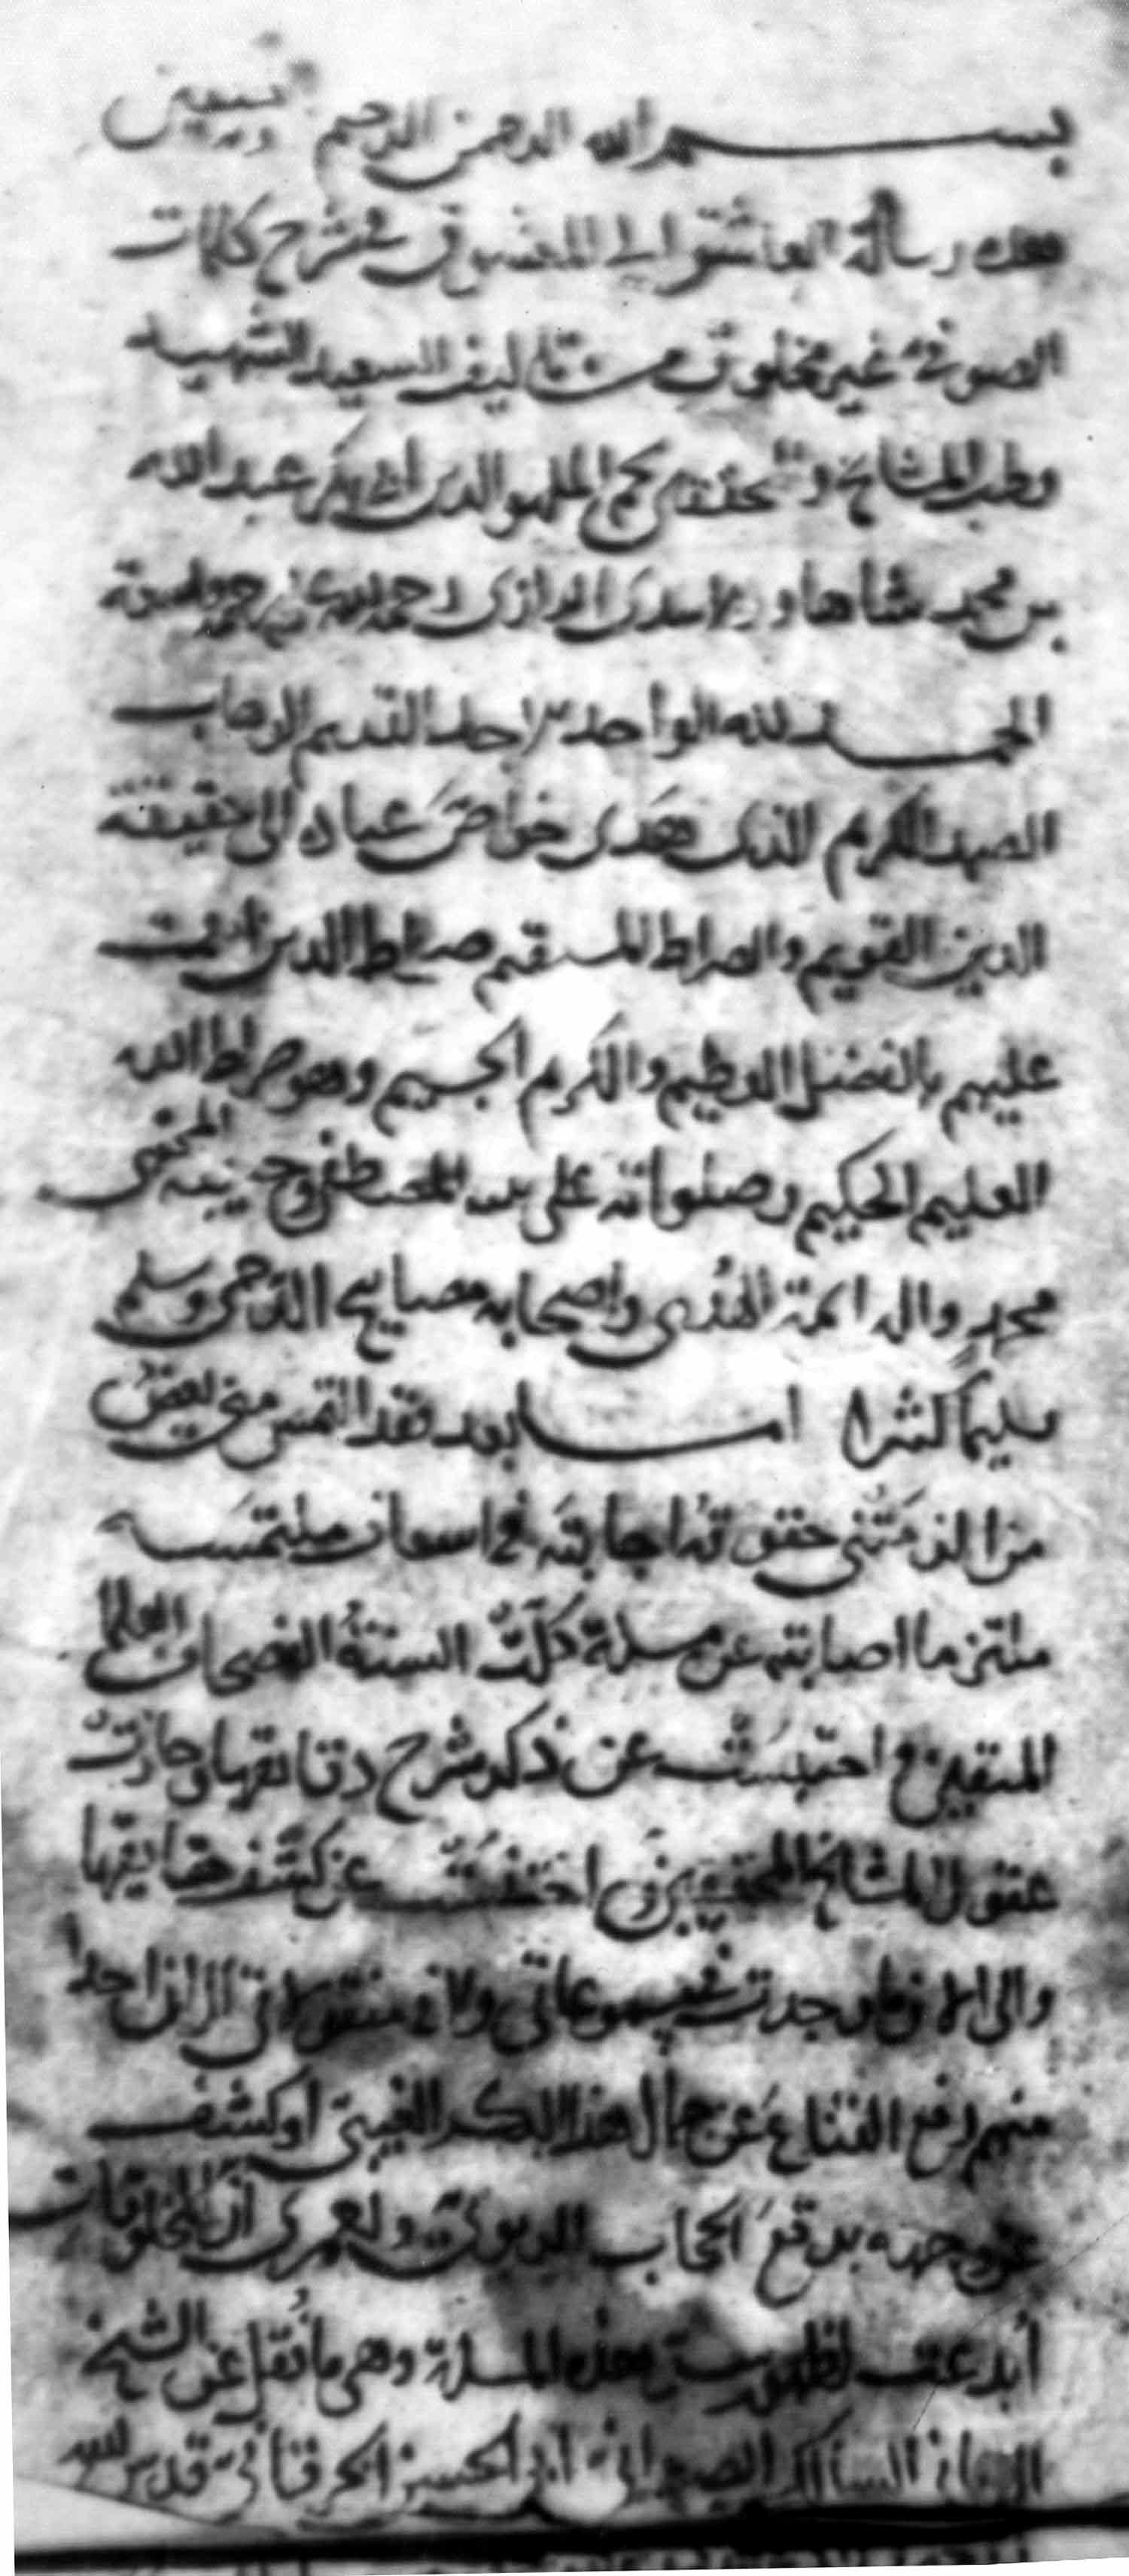 بسم الله الرحمن الرحيم
هذه رسالة العاشق الى المعشوق في شرح كلمات
الصوفي غير مخلوق من تاليف السعيد الشهيد
قطب المشايخ و نجم المله والدين ابي بكر عبد الله
بن محمد شاهاور الاسدى الرازى رحمة الله عليه رحمة واسعة
الحمد لله الواحد الاحد القديم
الصمد الكرم الذى هدى خواص عباده الى حقيقة
الدين القويم والصراط المستقيم صراط الذين انعمت
عليهم بالفضل العظيم والكرم الجسيم وهو صراط الله
العليم الحكيم وصلواته على المصطفى وحبيبه المجتبى
محمد واله ايمة الهدى واصحابه مصابيح الدجى وسلم
تسليما كثيرا اما بعد فقد التمس منى بعض
من الزمتنى حقوقه اجابته في اسعاف ملتمسه
ملتزما اصابته عن مسلة كلت السنة الفصحاء العلماء
المتقين و احتبست عن ذكر شرح دقايقها وحارت
عقول المشايخ المحققين و اختفت عن كشف حقايقها
والى الان ما وجدت في مسموعاتى ولا في منقولاتى ان احدا
منهم رفع القناع عن جمال هذا البكر الغيبى او كشف
عن وجهه برقع الحجاب ولعمرى ان المخلوقات
هذه المسلة وهى ما نقل عن الشيخ
الربانى السالك الصمدانى ابى الحسن الخرقانى قدس الله